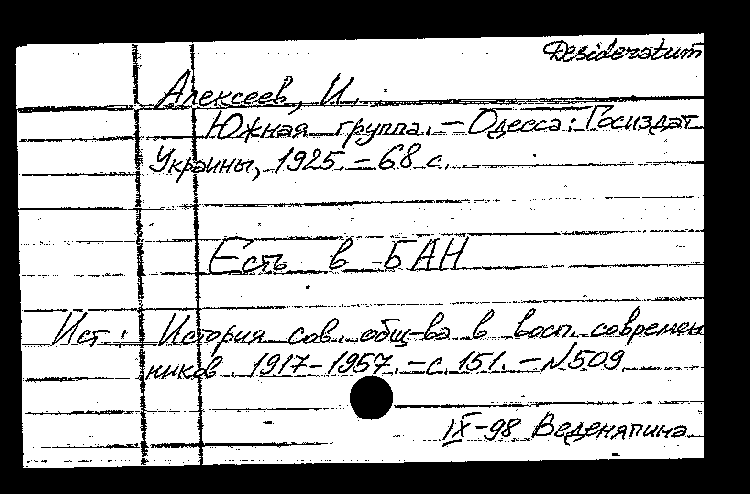 Desideratum
Алексеев, И.
Южная группа. – Одесса: Госиздат
Украины, 1925. – 68 с.
Есть в БАН
Ист: История сов. общ-ва в восп. современ
ников. 1917–1957. – с. 151. – N509
IX-98 Веденяпина